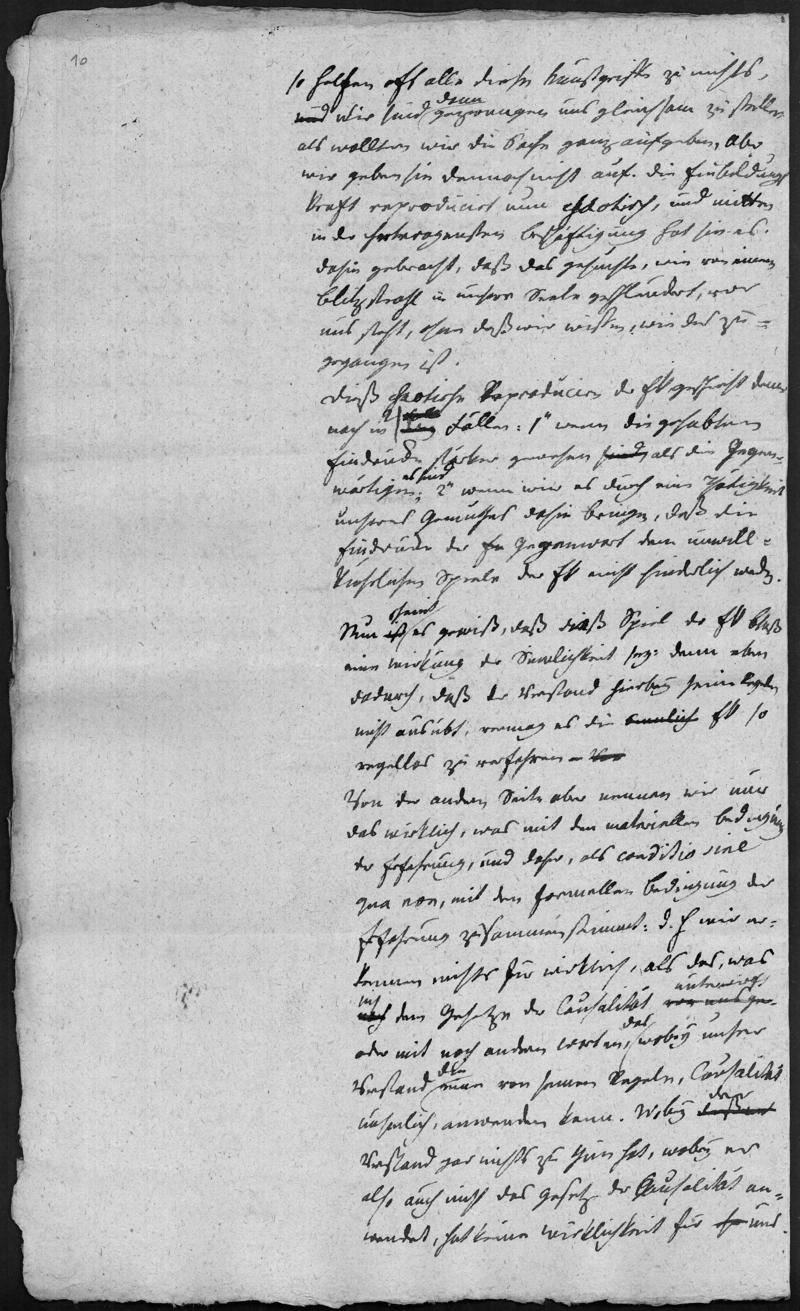 10
so helfen oft alle diese Kunstgriffe zu nichts,
und wir sind dann gezwungen uns gleichsam zu stellen
als wollten wir die Sache ganz aufgeben, aber
wir geben sie dennoch nicht auf. die Einbildungs
kraft reproducirt nun chaotisch, und mitten
in der heterogensten Beschäftigung hat sie es
dahin gebracht, daß das gesuchte, wie von einem
Blitzstrahl in unsere Seele geschleudert, vor
uns steht, ohne daß wir wissen, wie das zu=
gegangen ist.
Dieß chaotische Reproduciren der EK geschieht
nach in 2 Fällen: 1" wenn die gehabten
Eindrücke stärker gewesen sind als die Gegen=
wärtigen es sind; 2" wenn wir es durch eine Thätigkeit
unseres Gemüthes dahin bringen, daß die
Eindrücke der Gegenwart dem unwill=
kührlichen Spiele der EK nicht hinderlich werden.
Nun ist scheint es gewiß, daß dieß Spiel der EK bloß
eine Wirkung der Sinnlichkeit sey: denn eben
dadurch, daß der Verstand hierbey seine Regeln
nicht ausübt, vermag es die sinnliche EK so
regellos zu verfahren.
Von der andern Seite aber nennen wir nur
das wirklich, was mit den materiellen Bedingungen
der Erfahrung, und daher, als conditio sine
qua non, mit den formellen Bedingung der
Erfahrung zusammenstimmt: d. h wir er=
kennen nichts für wirklich, als das, was
nach dem Gesetze der Causalität
oder mit noch andern Worten, das, wobey unser
Verstand eine von seinen Regeln, Causalität
nehmlich, anwenden kann. Wobey der
Verstand gar nichts zu thun hat, wobey er
also auch nicht das Gesetz der Causalität an=
wendet, hat keine Wirklichkeit für uns.